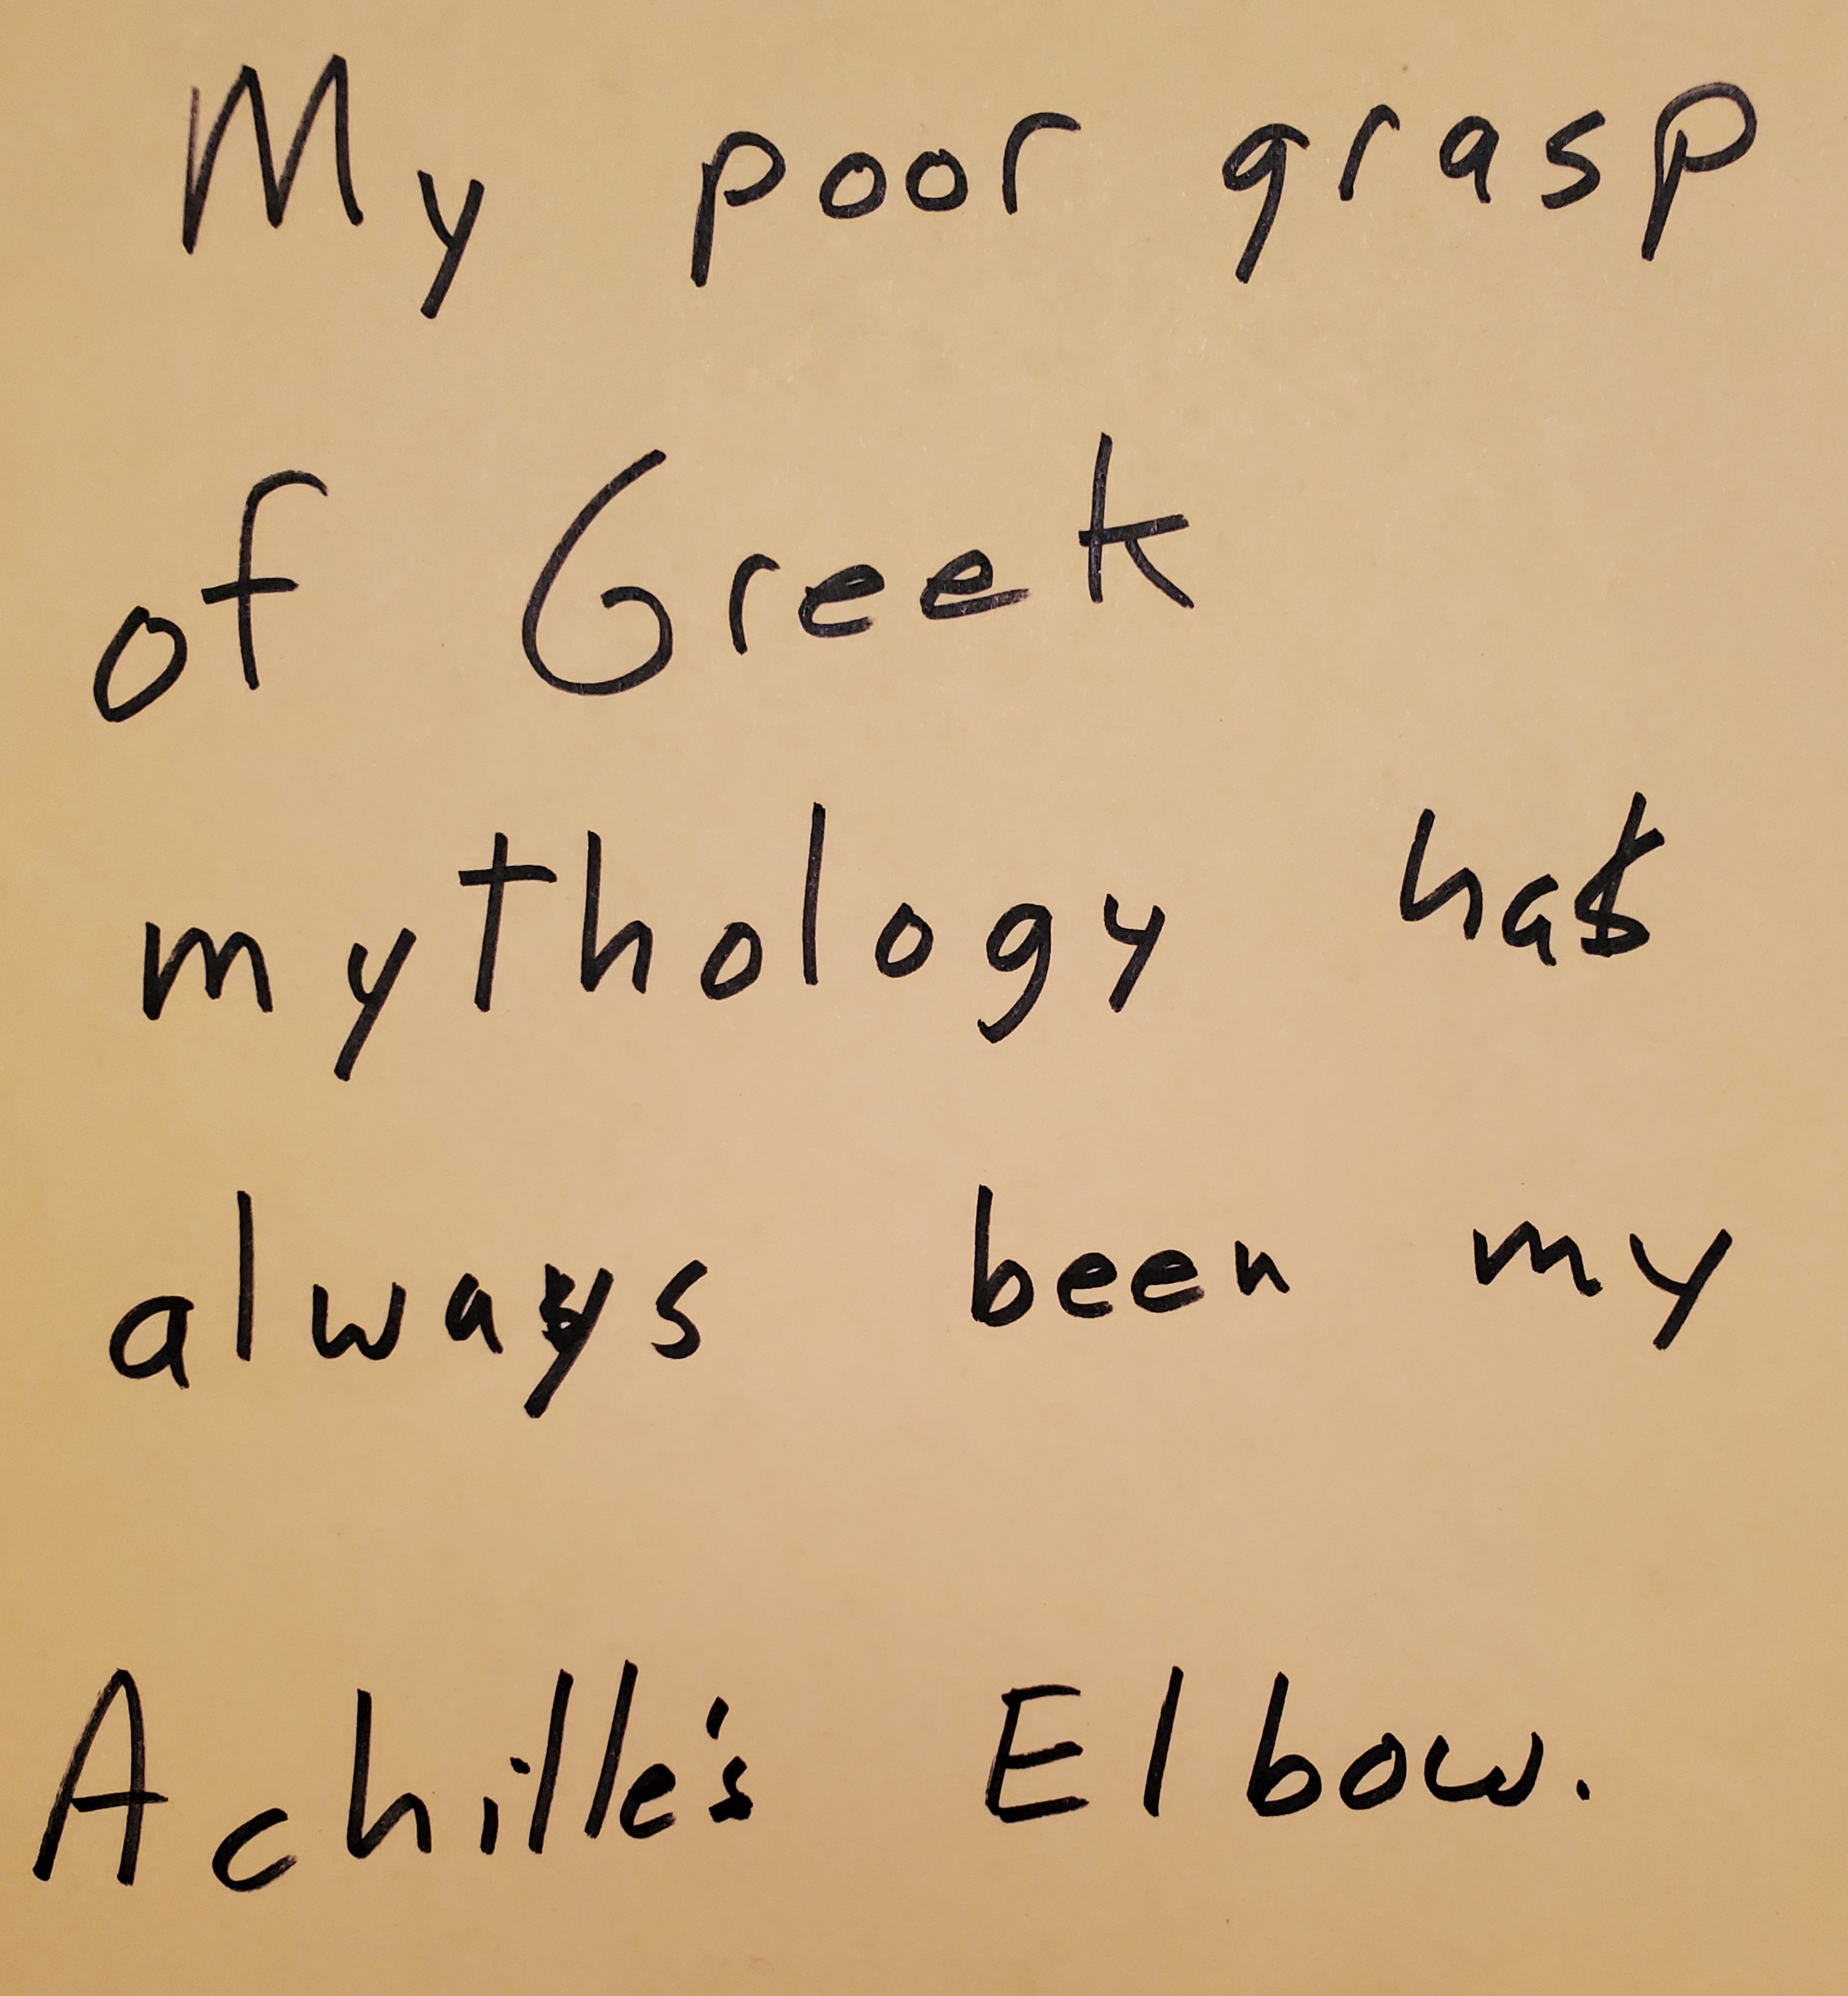 My poor grasp
of Greek
mythology has
always been my
Achille's Elbow.